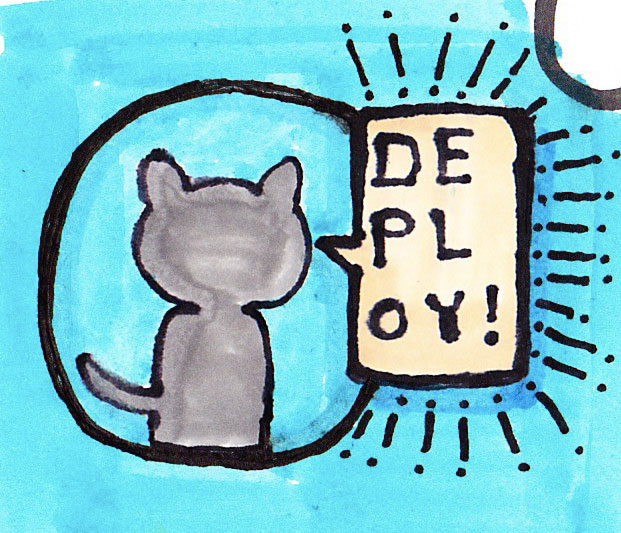 DE
PL
OY!